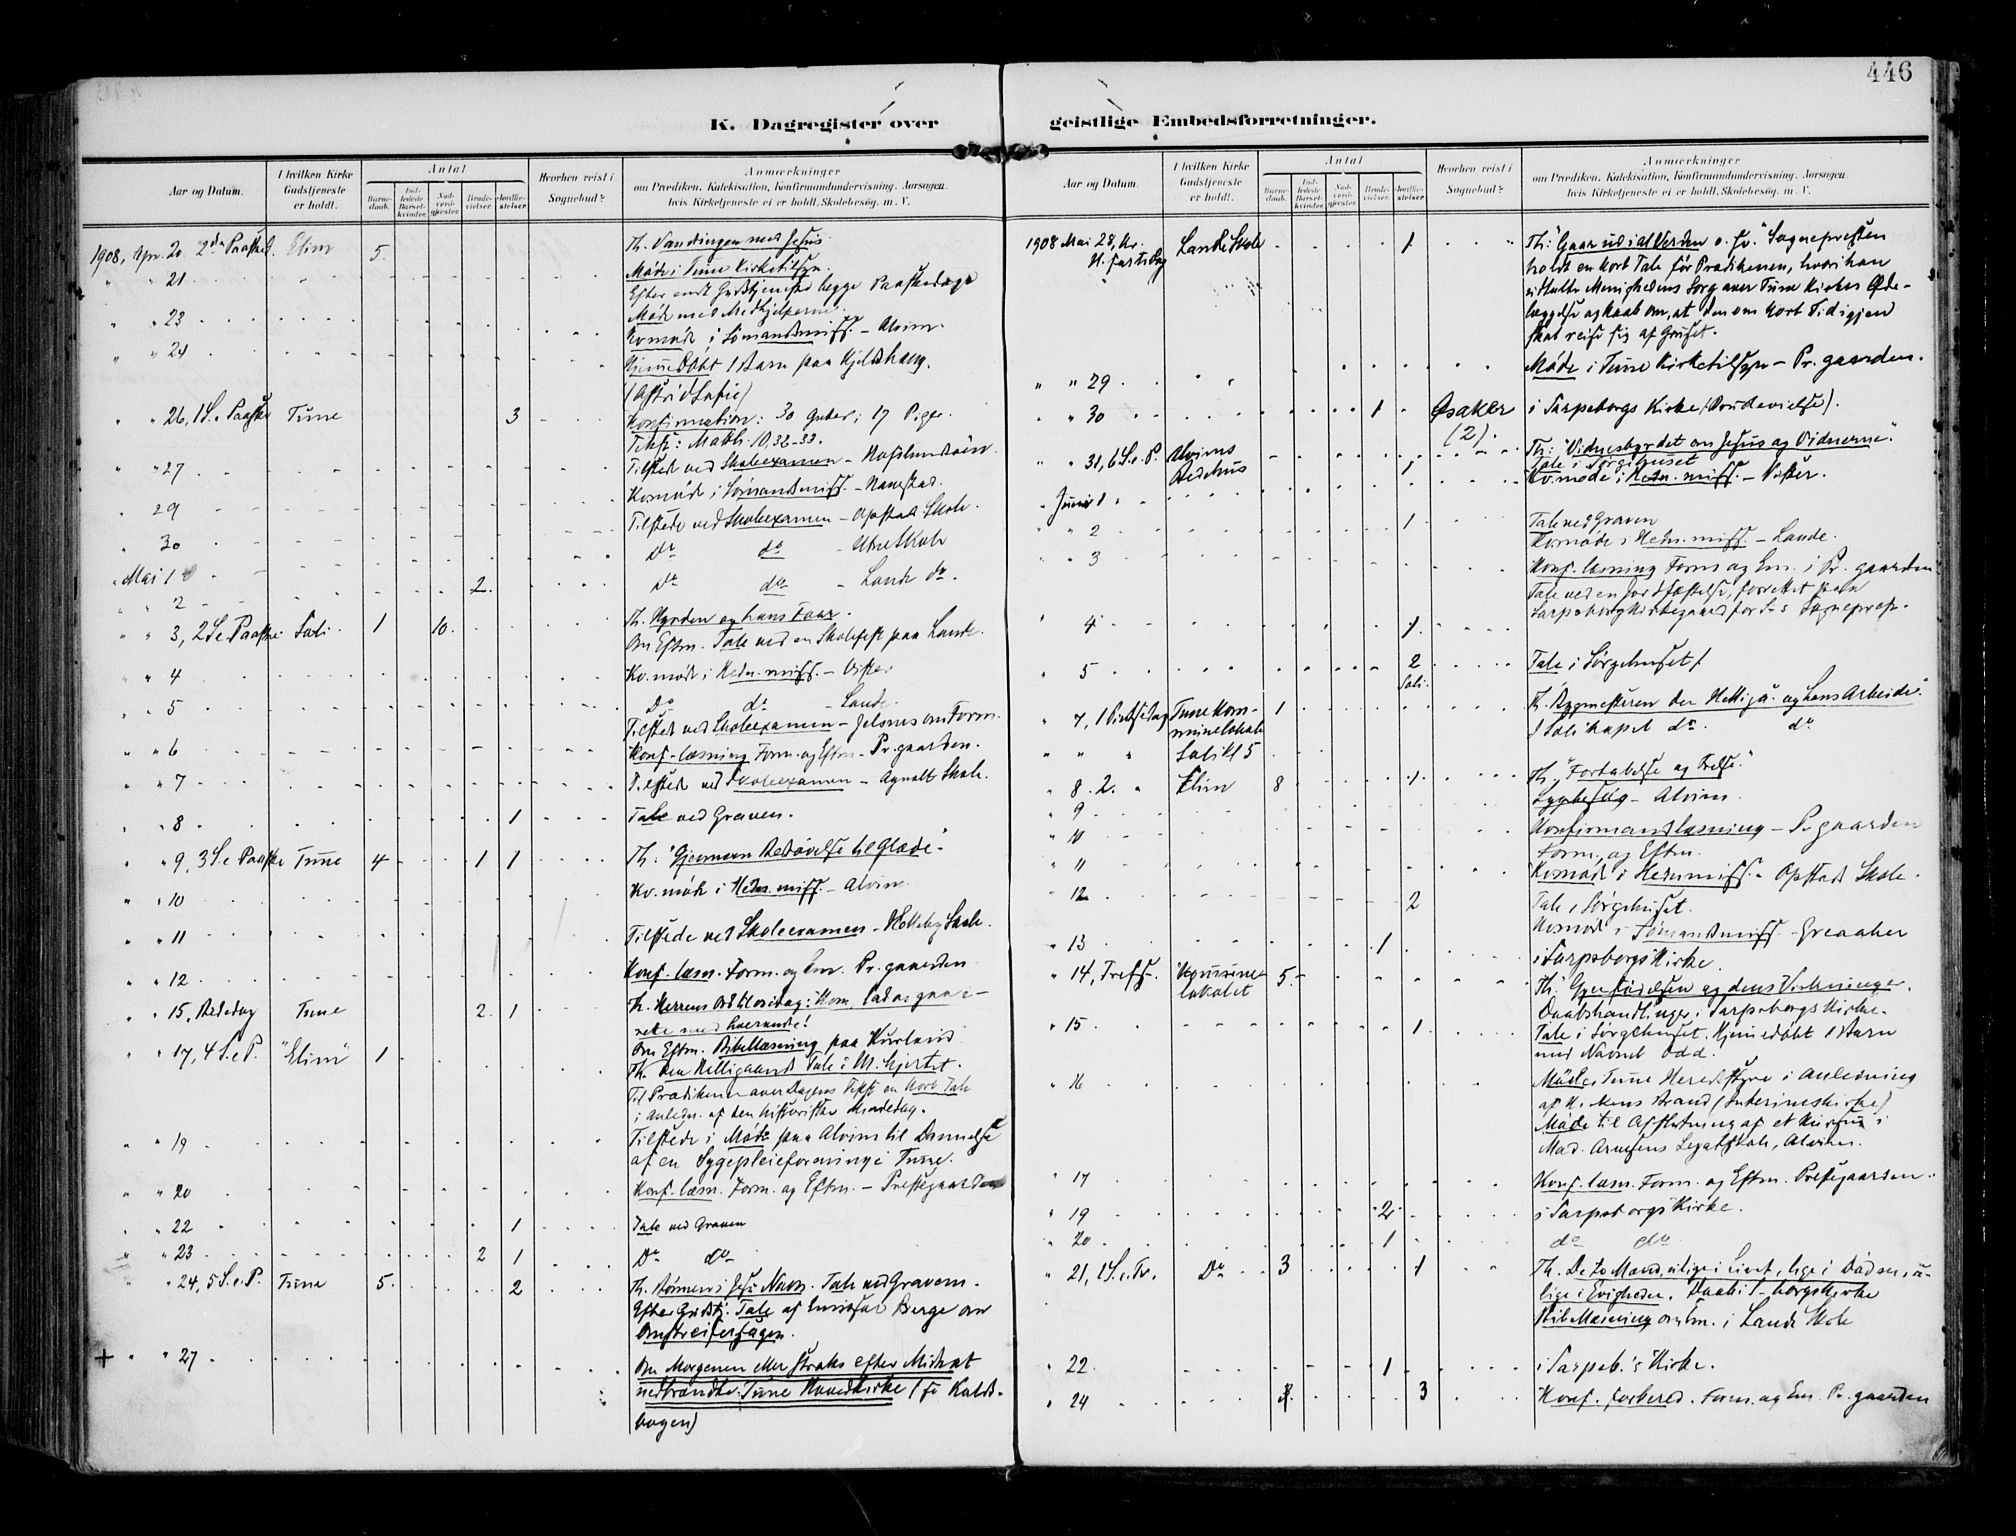 446
K. Dagregister over
geistlige Embedsforretninger.
Aar og Datum.
I hvilken Kirke Gudstjeneste er holdt.
Antal
Barnedaab.
Indledede Barselkvinder.
Nadverdgjester.
Brudevielser.
Jordfæstelser.
Hvorhen reist i Sognebud?
Anmærkninger
om Prædiken, Katekisation, Konfirmandundervisning, Aarsagen,
hvis Kirketjeneste ei er holdt, Skolebesøg, m. V.
1908, Apr. 20. 2den Paasked. Elim 5 Th. Vandringen med Jesus
" " 21 Møde i Tune Kirketilsyn.
Efter endt Gudstjeneste begge Paaskedage
" " 23 Møde med Medhjelperne.
Kv.møde i Sømandsmiss. – Alvim.
" " 24 Hjemmedøbt 1 Barn paa Hjelmshaug.
(Astrid Sofie)
" " 26, 1 S. e. Paaske Tune 3 Konfirmation: 30 Gutter; 17 Piger.
Tekst: Matth. 10, 32-33.
" " 27 Tilstede ved Skoleexamen – Hafslundsøen.
Kv.møde i Sømandsmiss. – Navestad.
" 29 Tilstede ved Skoleexamen – Opstad Skole.
" 30 Do do – Utne Skole
" Mai 1 2 Do do – Lande do.
" " 2
" " 3, 2 S. e. Paaske Soli 1 10 Th. Hyrden og hans Faar.
Om Eftm. Tale ved en Skolefest paa Lande.
" " 4 Kv.møde i Hedn.miss. – Vister
" " 5 Do do – Lande.
Tilstede ved Skoleexamen – Jelsnes om Form.
" " 6 Konf.læsning Form. og Eftm. – Pr.gaarden.
" " 7 Tilstede ved Skoleexamen – Agnalt Skole.
" " 8 1 Tale ved Graven.
" " 9, 3 S. e. Paaske Tune 4 1 1 Th: "Gjennem Bedrøvelse til Glæde".
" " 10 Kv.møde i Hedn.miss. – Alvim.
" " 11 Tilstede ved Skoleexamen – Holleby Skole.
" " 12 Konf.læsn. Form. og Em. Pr.gaarden
" " 15, Bededag Tune 2 1 Th. Herrens Ord til os idag: Kom, lad os gaa irette med hverandre!
Om Eftm. Bibellæsning paa Kurland
" " 17, 4 S. e. P. "Elim" 1 Th. Den Helligaands Tale i M. hjertet.
Til Prædikenen over Dagens Tekst en kort Tale
i Anledn. af den historiske Mindedag.
" " 19 Tilstede i Møde paa Alvim til Dannelse
af en Sygepleieforening i Tune.
" " 20 Konf.læsn. Form. og Eftm. – Prestegaarden
" " 22 1 Tale ved Graven
" " 23 2 1 Do do
" " 24, 5 S. e. P. Tune 5 2 Th. Bønnen i Jesu Navn. Tale ved Graven.
Efter Gudstj. Tale af Emissær Berge om
Omstreifersagen.
+ " " 27 Om Morgenen eller straks efter Midnat
nedbrændte Tune Hovedkirke (se Kaldsbogen)
Aar og Datum.
I hvilken Kirke Gudstjeneste er holdt.
Antal
Barnedaab.
Indledede Barselkvinder.
Nadverdgjester.
Brudevielser.
Jordfæstelser.
Hvorhen reist i Sognebud?
Anmærkninger
om Prædiken, Katekisation, Konfirmandundervisning, Aarsagen,
hvis Kirketjeneste ei er holdt, Skolebesøg, m. V.
1908 Mai 28, Kr. H. fartsdag Lande Skole 1 Th: "Gaar ud i al Verden o. s. v." Sognepresten
holdt en kort Tale før Prædikenen, hvori han
udtalte Menighedens Sorg over Tune Kirkes Ødelæggelse
og Haab om, at den om kort Tid igjen
skal reise sig af Gruset.
" " 29 Møde i Tune Kirketilsyn – Pr.gaarden.
" 30 1 Øsaker (2). i Sarpsborgs Kirke (Brudevielse).
" 31, 6 S. e. P. Alvims Bedehus 1 Th: "Vidnesbyrdet om Jesus og Vidnerne".
Tale i Sørgehuset
" Juni 1 Kv.møde i Hedn.miss. – Vister.
" 2 1 Tale ved Graven
Kv.møde i Hedn.miss. – Lande.
" 3 Konf.læsning Form og Em. i Pr.gaarden
" 4 1 Tale ved en Jordfæstelse, forrettet paa
Sarpsborg Kirkegaard for S-s Sogneprest.
" 5 2 Soli. Tale i Sørgehuset.
" 7, 1 Pintsedag Tune Kommunelokale 1 Th. Bygmesteren den Helligaa. og hans Arbeide".
" " " Soli kl 5 I Soli kapel do do
" 8. 2. " Elim 8 1 Th. "Fortabelse og Frelse."
" 9 Sygebesøg – Alvim.
" 10 Konfirmandlæsning – Pr.gaarden
Form. og Eftm.
" 11 Kv.møde i Hednmiss. – Opstad Skole.
" 12 2 Tale i Sørgehuset.
Kv.møde i Sømandsmiss. – Greaaker
" 13 1 i Sarpsborgs Kirke.
" 14, Trefst. Kommunelokalet 5 Th: Gjenfødelsen og dens Virkninger.
Daabshandlinger i Sarpsborgs Kirke.
" 15 1 Tale i Sørgehuset. Hjemmedøbt 1 Barn
med Navnet Odd.
" 16 Møde i Tune Heredsstyre i Anledning
af K. Brand (Interimskirke)
Møde til Afslutning af et Kursus i
Mad. Arnesens Legatskole, Alvim.
" 17 Konf.læsn. Form. og Eftm. Prestegaarden.
" 19 2 i Sarpsborgs Kirke.
" 20 1 do do
" 21, 1 S. e. Tr. Do 3 1 Th. De to Mænd, ulige i Livet, lige i Døden, ulige
i Evigheden. Daab i S-borgs Kirke
Bibellæsning om Em. i Lande Skole
" 22 1 i Sarpsb.'s Kirke.
" 24 3 Konf.forbered. Form. og Em. Pr.gaarden